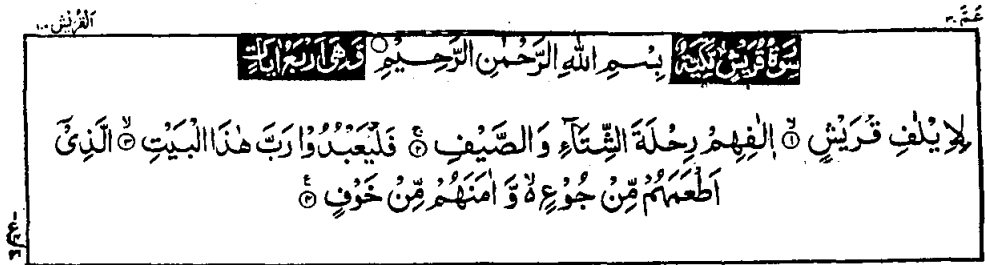 عَمَّ ٣٠
اَلْقُرَيْش ١٠٦
سُوْرَةُ قُرَيْشٍ مَّكِّيَّةٌ بِسْمِ اللّٰهِ الرَّحْمٰنِ الرَّحِيْمِ وَّهِىَ اَرْبَعُ اٰيَاتٍ
لِاِيْلٰفِ قُرَيْشٍ ۙ﴿۱﴾ اٖلٰفِهِمْ رِحْلَةَ الشِّتَآءِ وَ الصَّيْفِ ۚ﴿۲﴾ فَلْيَعْبُدُوْا رَبَّ هٰذَا الْبَيْتِ ۙ﴿۳﴾ الَّذِىْٓ
اَطْعَمَهُمْ مِّنْ جُوْعٍ ۙ۬ وَّ اٰمَنَهُمْ مِّنْ خَوْفٍ ۚ﴿۴﴾